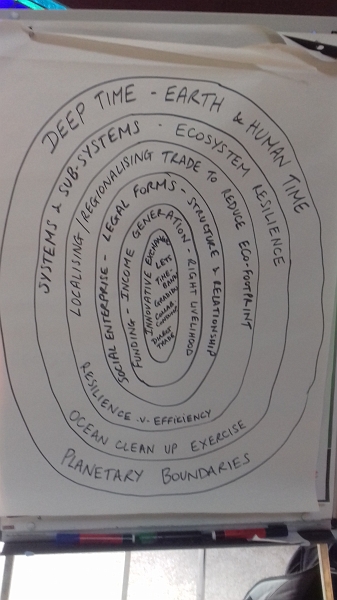 DEEP TIME - EARTH & HUMAN TIME
PLANETARY BOUNDARIES
SYSTEMS & SUB-SYSTEMS - ECOSYSTEM RESILIENCE
OCEAN CLEAN UP EXERCISE
LOCALISING/REGIONALISING TRADE TO REDUCE ECO-FOOTPRINT
RESILIENCE -V- EFFICIENCY
SOCIAL ENTERPRISE - LEGAL FORMS - STRUCTURE & RELATIONSHIP
FUNDING - INCOME GENERATION - RIGHT LIVELIHOOD
INNOVATIVE EXCHANGE
LETS
TIME-
BANK
COLLAB
DIRECT
TRADE